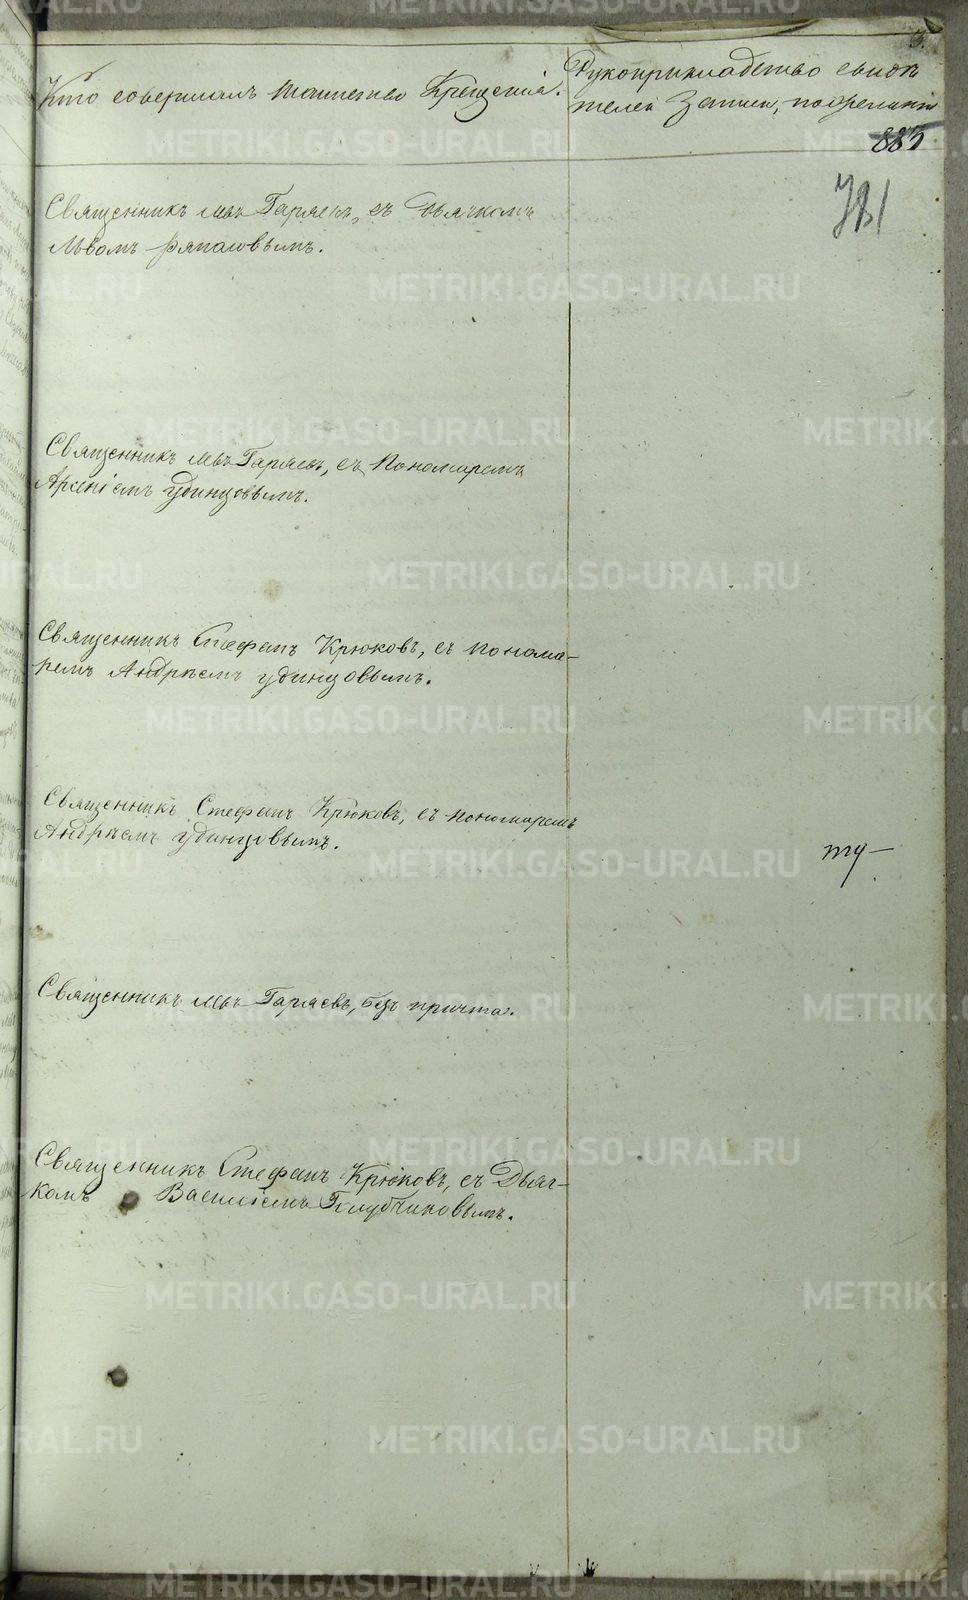 3.
Кто совершалъ таинство Крещенія.
Рукоприкладство свидѣ
телей записи, по желанію
885
781
Священникъ Іаковъ Гаряевъ, съ Дьячкомъ
Львомъ
Священникъ Гаряевъ, съ Пономаремъ
Арсеніемъ Удинцовымъ.
Священникъ Стефанъ Крюковъ, съ понома-
ремъ Андреемъ Удинцовымъ.
Священникъ Стефанъ Крюковъ, съ пономаремъ
Андреемъ Удинцовымъ.
Священникъ Гаряевъ, безъ причта.
Священникъ Стефанъ Крюковъ, съ Дьяч-
комъ Василіемъ Голубчиковымъ.
METRIKI.GASO-URAL.RU